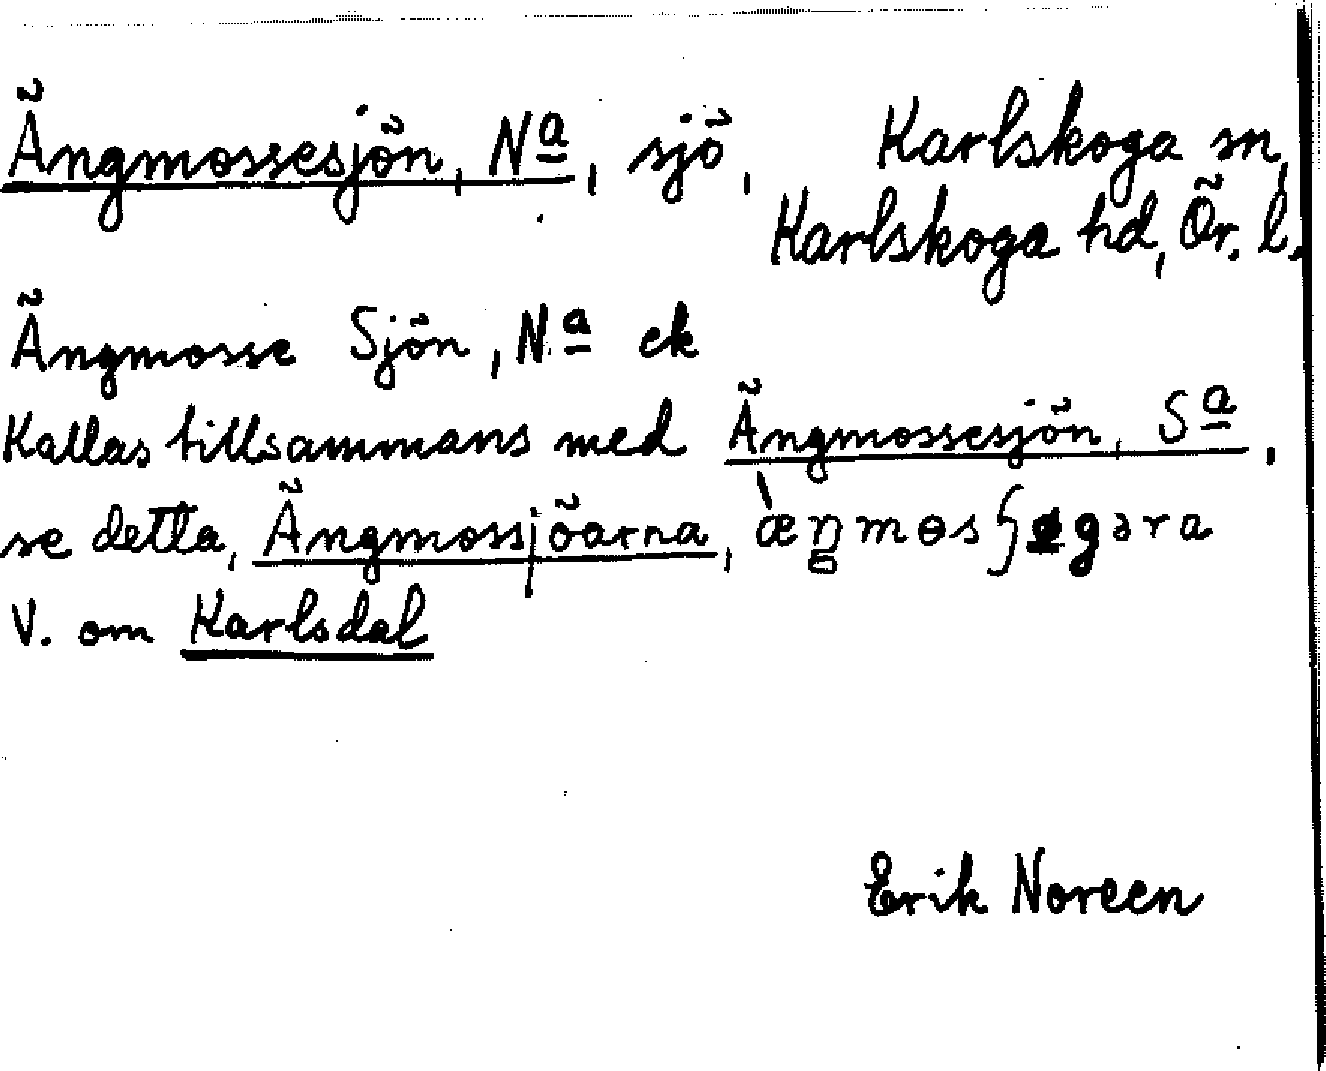 Ängmossesjön, Nª, sjö, Karlskoga sn,
Karlskoga hd, Ör. l.
Ängmosse Sjön, Nª ek
Kallas tillsammans med Ängmossesjön, Sª,
se detta, Ängmossjöarna,
V. om Karlsdal
Erik Noreen